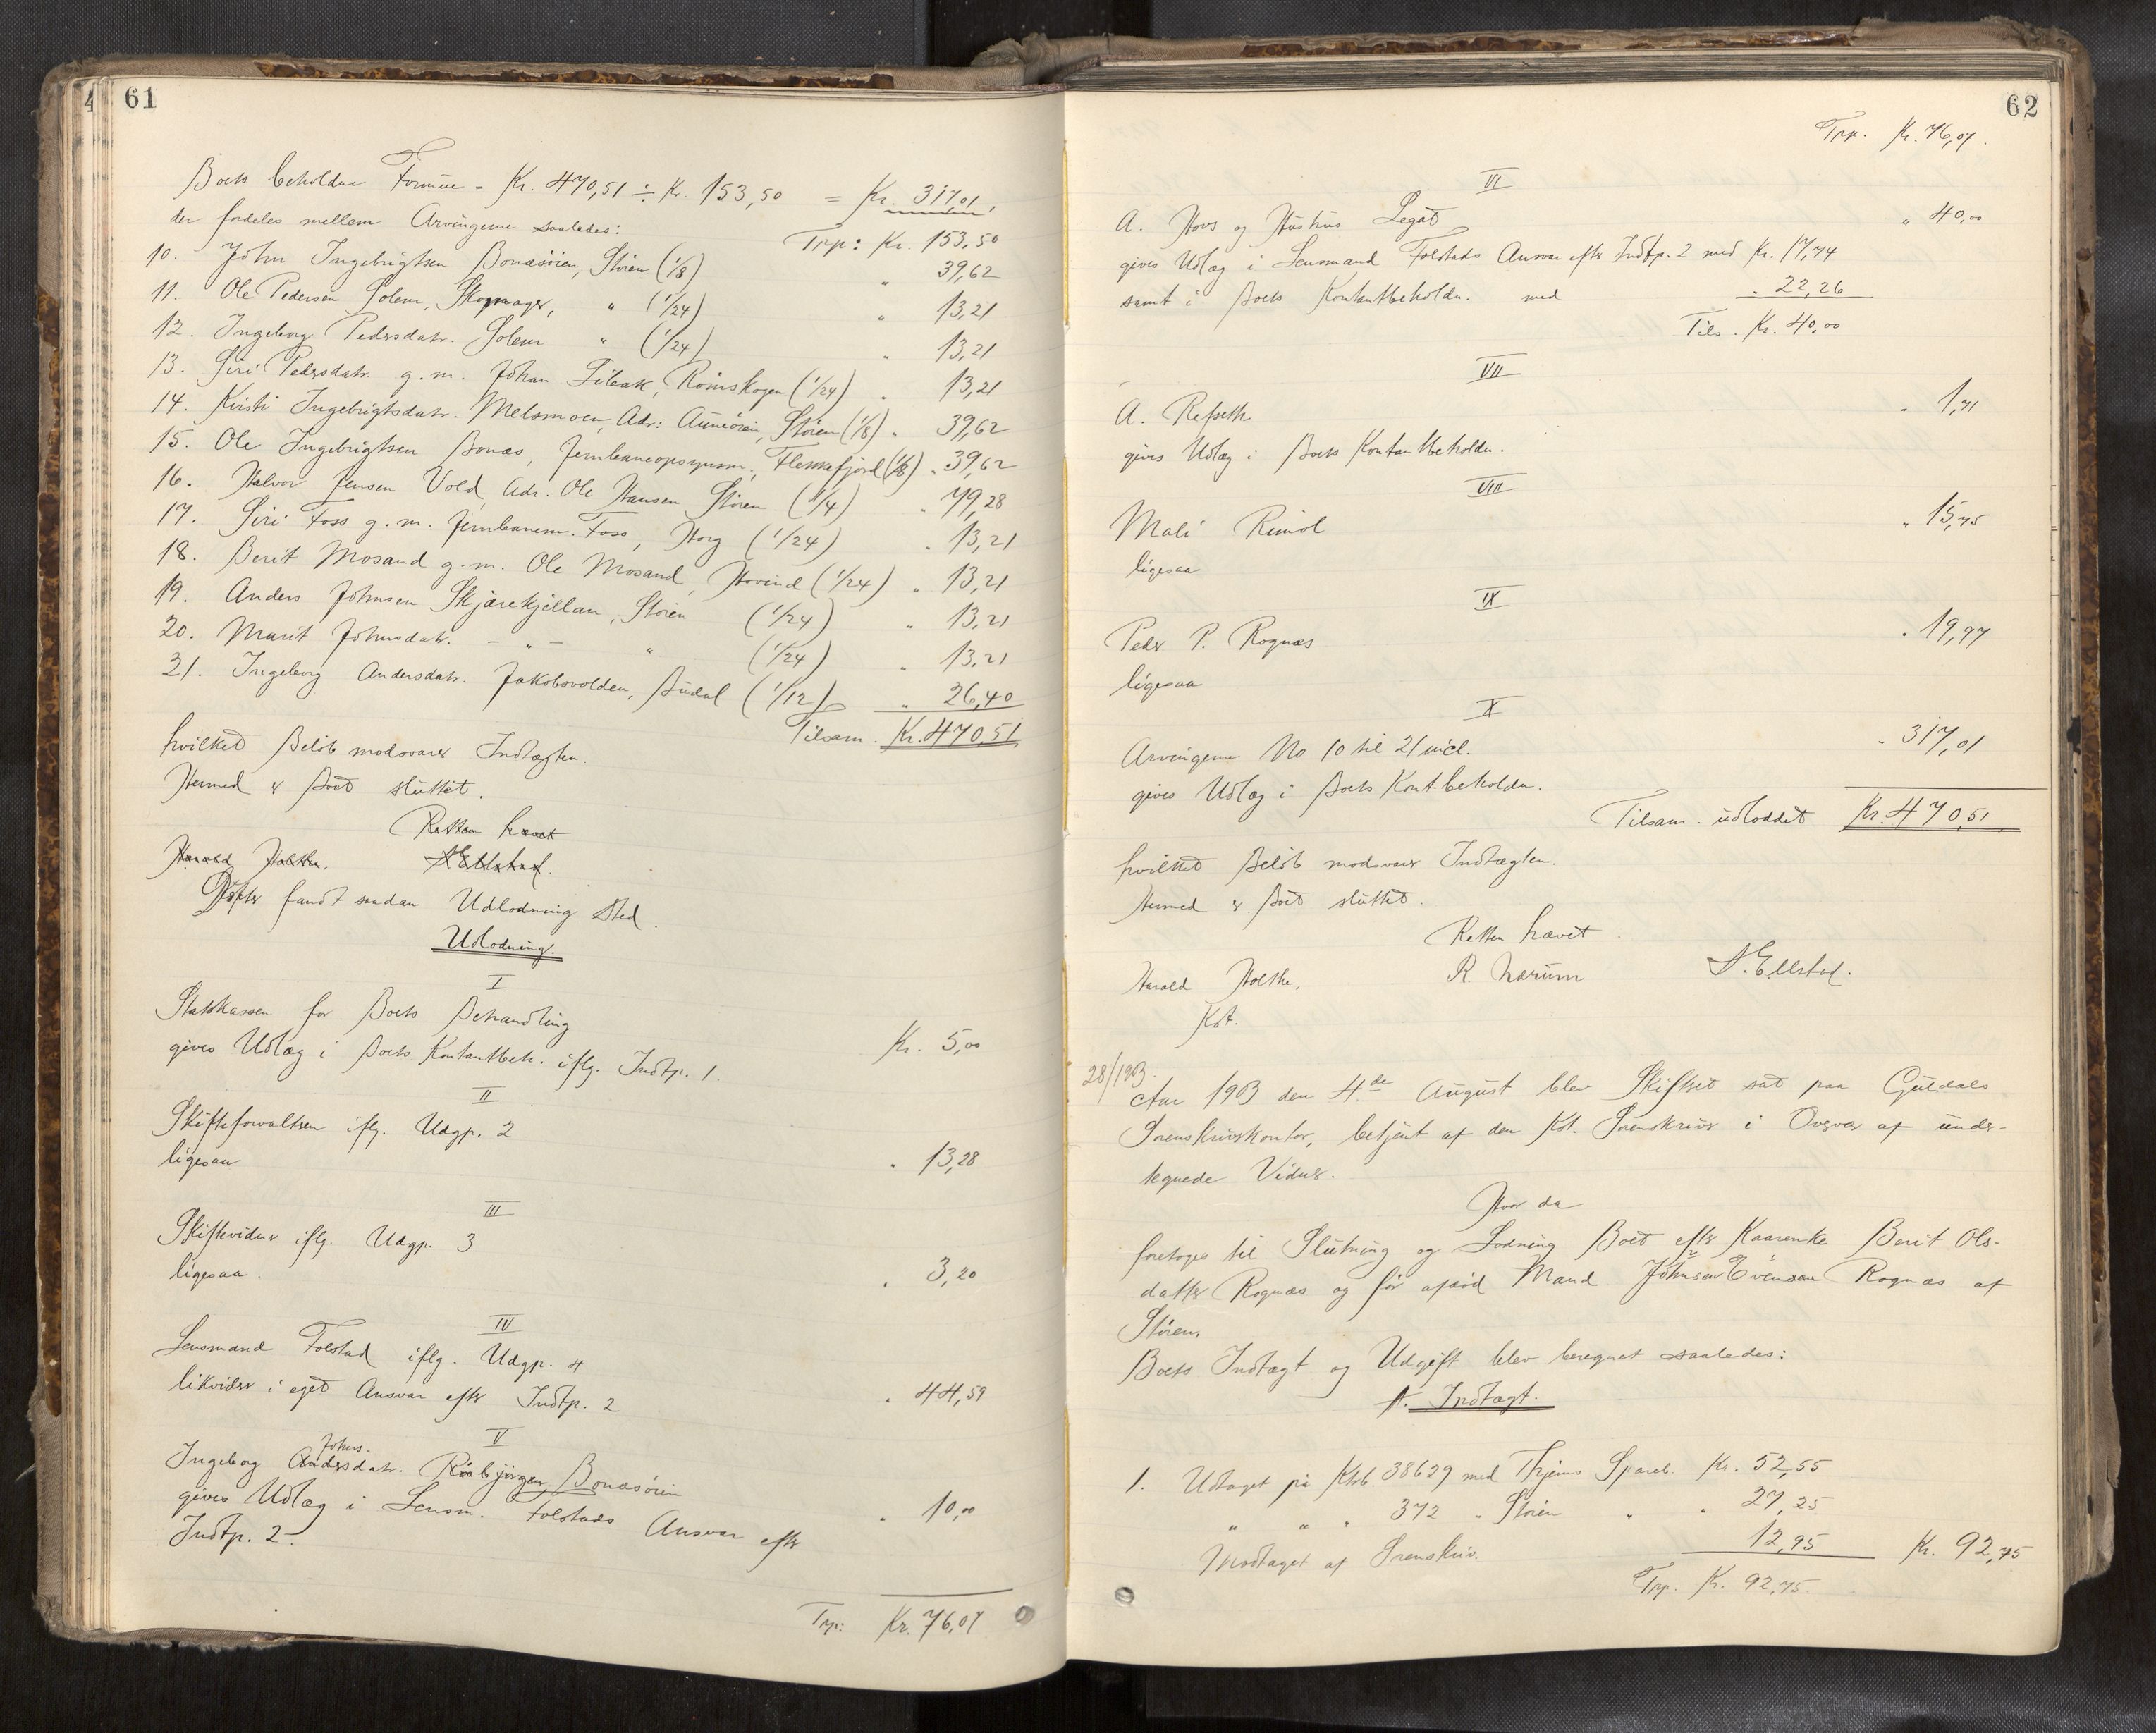 61
Boets beholdne Formue = Kr. 470,51 ÷ Kr. 153,50 = Kr. 317,01,
der fordeles mellem Arvingerne saaledes: Trp: Kr. 153,50
10. John Ingebrigtsen Bonæsöien, Stören (1/8) " 39,62
11. Ole Pedersen Solem, Skogmager, " (1/24) " 13,21
12. Ingeborg Pedersdatr. Solem " (1/24) " 13,21
13. Siri Pedersdatr. g. m. Johan Libak, Römskogen (1/24) " 13,21
14. Kirsti Ingebrigtsdatr. Melsmoen, Adr: Auneöien, Stören (1/8) " 39,62
15. Ole Ingebrigtsen Bonæs, Jernbaneopsynsm., Flensfjord (1/8) " 39,62
16. Halvor Jensen Vold, Adr. Ole Hansen Stören (1/4) " 79,28
17. Siri Foss g. m. Jernbanem. Foss, Horg (1/24) " 13,21
18. Berit Mosand g. m. Ole Mosand, Hovind (1/24) " 13,21
19. Anders Johnsen Skjærekjellan, Stören (1/24) " 13,21
20. Marit Johnsdatr. - " - " (1/24) " 13,21
21. Ingeborg Andersdatr. Jakobsvolden, Budal (1/12) " 26,40
Tilsam. Kr. 470,51
hvilket Belöb modsvarer Indtægten.
Hermed er Boet sluttet.
Retten hævet
Harald Holthe. A Ellstad.
Derefter fandt saadan Udlodning Sted.
Udlodning.
I
Statskassen for Boets Behandling
gives Udlæg i Boets Kontantbeh. iflg. Indtp. 1. Kr. 5,00
II
Skifteforvalteren iflg. Udgp. 2
ligesaa " 13,28
III
Skiftevidner iflg. Udgp. 3
ligesaa. " 3,20
IV
Lensmand Folstad iflg. Udgp. 4
likvider i eget Ansvar efter Indtp. 2 " 44,59
V
Johns.
Ingeborg Andersdatr. Röbjörgen Bonæsöien
gives Udlæg i Lensm. Folstads Ansvar efter " 10,00
Indtp. 2.
Trp: Kr. 76,07
62
Trp. Kr. 76,07.
VI
A. Hovs og Hustrus Legat " 40,00
gives Udlæg i Lensmand Folstads Ansvar efter Indtp. 2 med Kr. 17,74
samt i Boets Kontantbeholdn. med " 22,26
Tils. Kr. 40,00
VII
A. Refseth " 1,71
gives Udlæg i Boets Kontantbeholdn.
VIII
Mali Rimol " 15,75
ligesaa
IX
Peder P. Rognæs " 19,97
ligesaa
X
Arvingerne No 10 til 21 incl. " 317,01
gives Udlæg i Boets Kont.beholdn.
Tilsam. udloddet Kr. 470,51
hvilket Belöb modsvarer Indtægten.
Hermed er Boet sluttet.
Retten hævet.
Harald Holthe. R. Nærum A. Ellstad.
Kst.
28/1903.
Aar 1903 den 4de August blev Skifteret sat paa Guldals
Sorenskriverkontor, betjent af den Kst. Sorenskriver i Overvær af under-
tegnede Vidner.
Hvor da
foretoges til Slutning og Lodning Boet efter Kaarenke Berit Ols-
datter Rognæs og för afdöd Mand Johnsen Evensen Rognæs af
Stören.
Boets Indtægt og Udgift blev beregnet saaledes:
A. Indtægt.
1. Udtaget på Ktrb. 38629 med Thjems Spareb. Kr. 52,55
" " " 372 " Stören " " 27,25
Modtaget af Sorenskriv. 12,95 Kr. 92,75
Trp. Kr. 92,75.